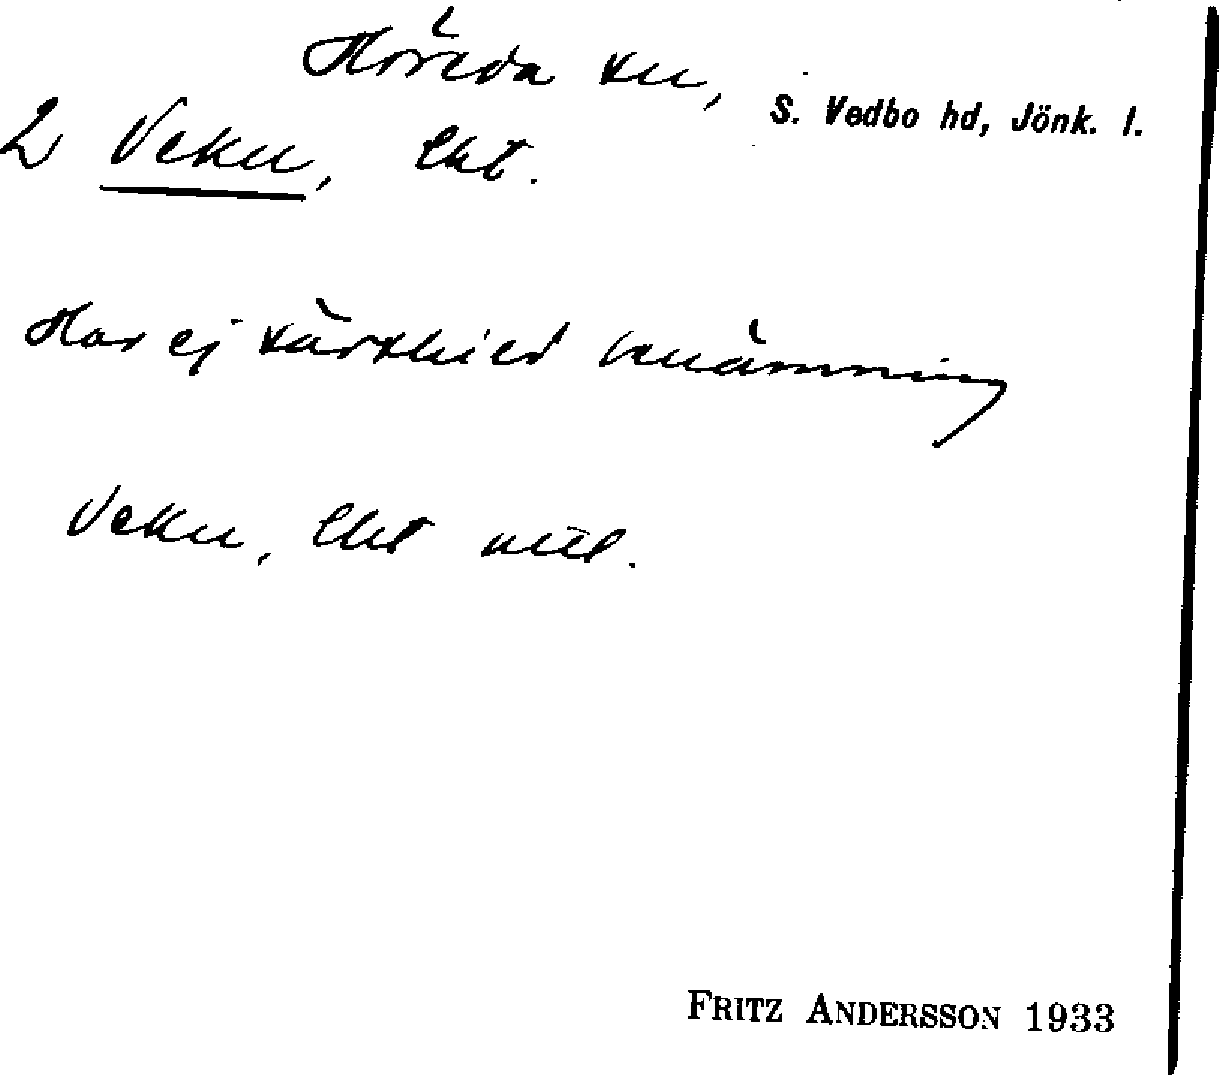 Höreda sn, S. Vedbo hd, Jönk. l.
2 Veken, ekt.
Har ej särskild benämning
Veken,
FRITZ ANDERSSON 1933